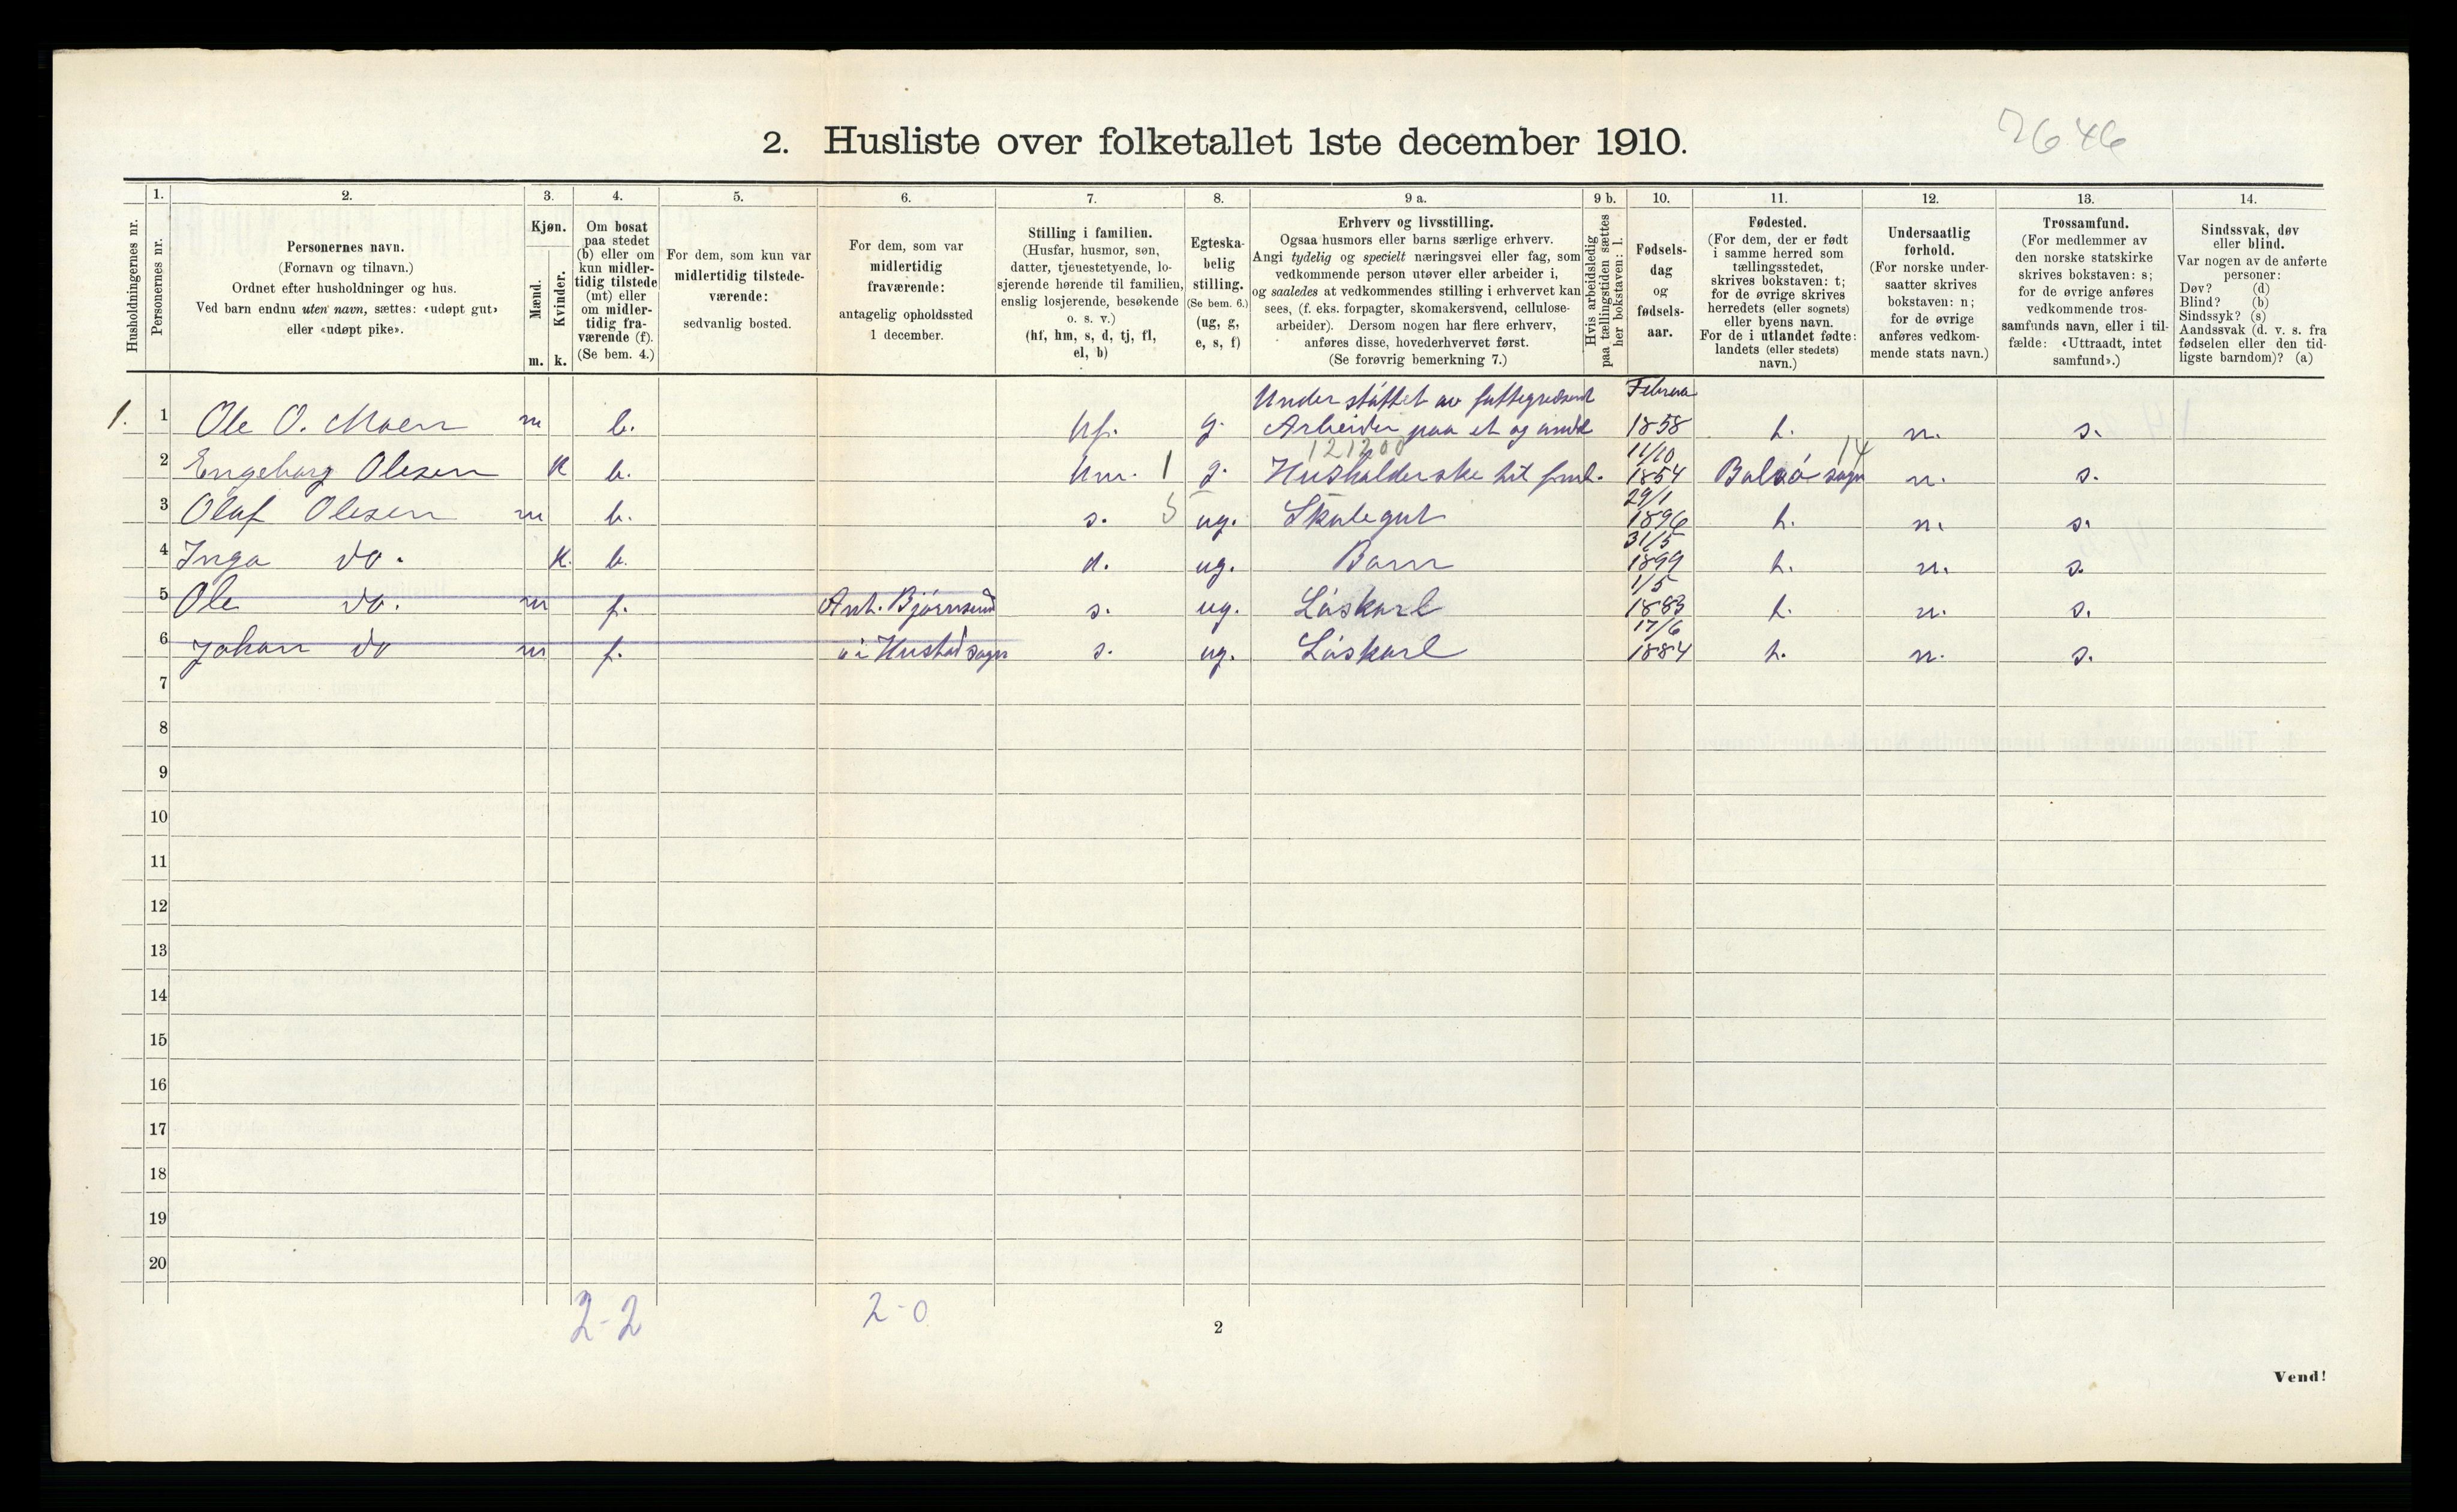 2. Husliste over folketallet 1ste december 1910.
2646
Husholdningernes nr.
1.
Personernes nr.
2.
Personernes navn.
(Fornavn og tilnavn.)
Ordnet efter husholdninger og hus.
Ved barn endnu uten navn, sættes: «udøpt gut»
eller «udøpt pike».
3.
Kjøn.
Mænd.
Kvinder.
m. k.
4.
Om bosat
paa stedet
(b) eller om
kun midler-
tidig tilstede
(mt) eller
om midler-
tidig fra-
værende (f).
(Se bem. 4.)
5.
For dem, som kun var
midlertidig tilstede-
værende:
sedvanlig bosted.
6.
For dem, som var
midlertidig
fraværende:
antagelig opholdssted
1 december.
7.
Stilling i familien.
(Husfar, husmor, søn,
datter, tjenestetyende, lo-
sjerende hørende til familien,
enslig losjerende, besøkende
o. s. v.)
(hf, hm, s, d, tj, fl,
el, b)
8.
Egteska-
belig
stilling.
(Se bem. 6.)
(ug, g,
e, s, f)
9 a.
Erhverv og livsstilling.
Ogsaa husmors eller barns særlige erhverv.
Angi tydelig og specielt næringsvei eller fag, som
vedkommende person utøver eller arbeider i,
og saaledes at vedkommendes stilling i erhvervet kan
sees, (f. eks. forpagter, skomakersvend, cellulose-
arbeider). Dersom nogen har flere erhverv,
anføres disse, hovederhvervet først.
(Se forøvrig bemerkning 7.)
9 b.
Hvis arbeidsledig
paa tællingstiden sættes
her bokstaven: l.
10.
Fødsels-
dag
og
fødsels-
aar.
11.
Fødested.
(For dem, der er født
i samme herred som
tællingsstedet,
skrives bokstaven: t;
for de øvrige skrives
herredets (eller sognets)
eller byens navn.
For de i utlandet fødte:
landets (eller stedets)
navn.)
12.
Undersaatlig
forhold.
(For norske under-
saatter skrives
bokstaven: n;
for de øvrige
anføres vedkom-
mende stats navn.)
13.
Trossamfund.
(For medlemmer av
den norske statskirke
skrives bokstaven: s;
for de øvrige anføres
vedkommende tros-
samfunds navn, eller i til-
fælde: «Uttraadt, intet
samfund».)
14.
Sindssvak, døv
eller blind.
Var nogen av de anførte
personer:
Døv? (d)
Blind? (b)
Sindssyk? (s)
Aandssvak (d. v. s. fra
fødselen eller den tid-
ligste barndom)? (a)
Understøttet av Februar
1. 1 Ole O. Moen m b. hf. g. Arbeider paa et og andet 1858 t. n. s.
121200 11/10 14
2 Engeborg Olesen k b. hm. 1 g. Husholderske 1854 Bolsø sogn n. s.
29/1
3 Olaf Olesen m b. s. 5 ug. Skolegut 1896 t. n. s.
31/5
4 Inga do. k. b. d. ug. Barn 1899 t. n. s.
1/5
5 Ole do. m f. Ant. Bjørnsund s. ug. Løskarl 1883 t. n. s.
17/6
6 Johan do m f. i Hustad sogn s. ug. Løskarl 1884 t. n. s.
7
8
9
10
11
12
13
14
15
16
17
18
19
20
2-2 2-0
2
Vend!